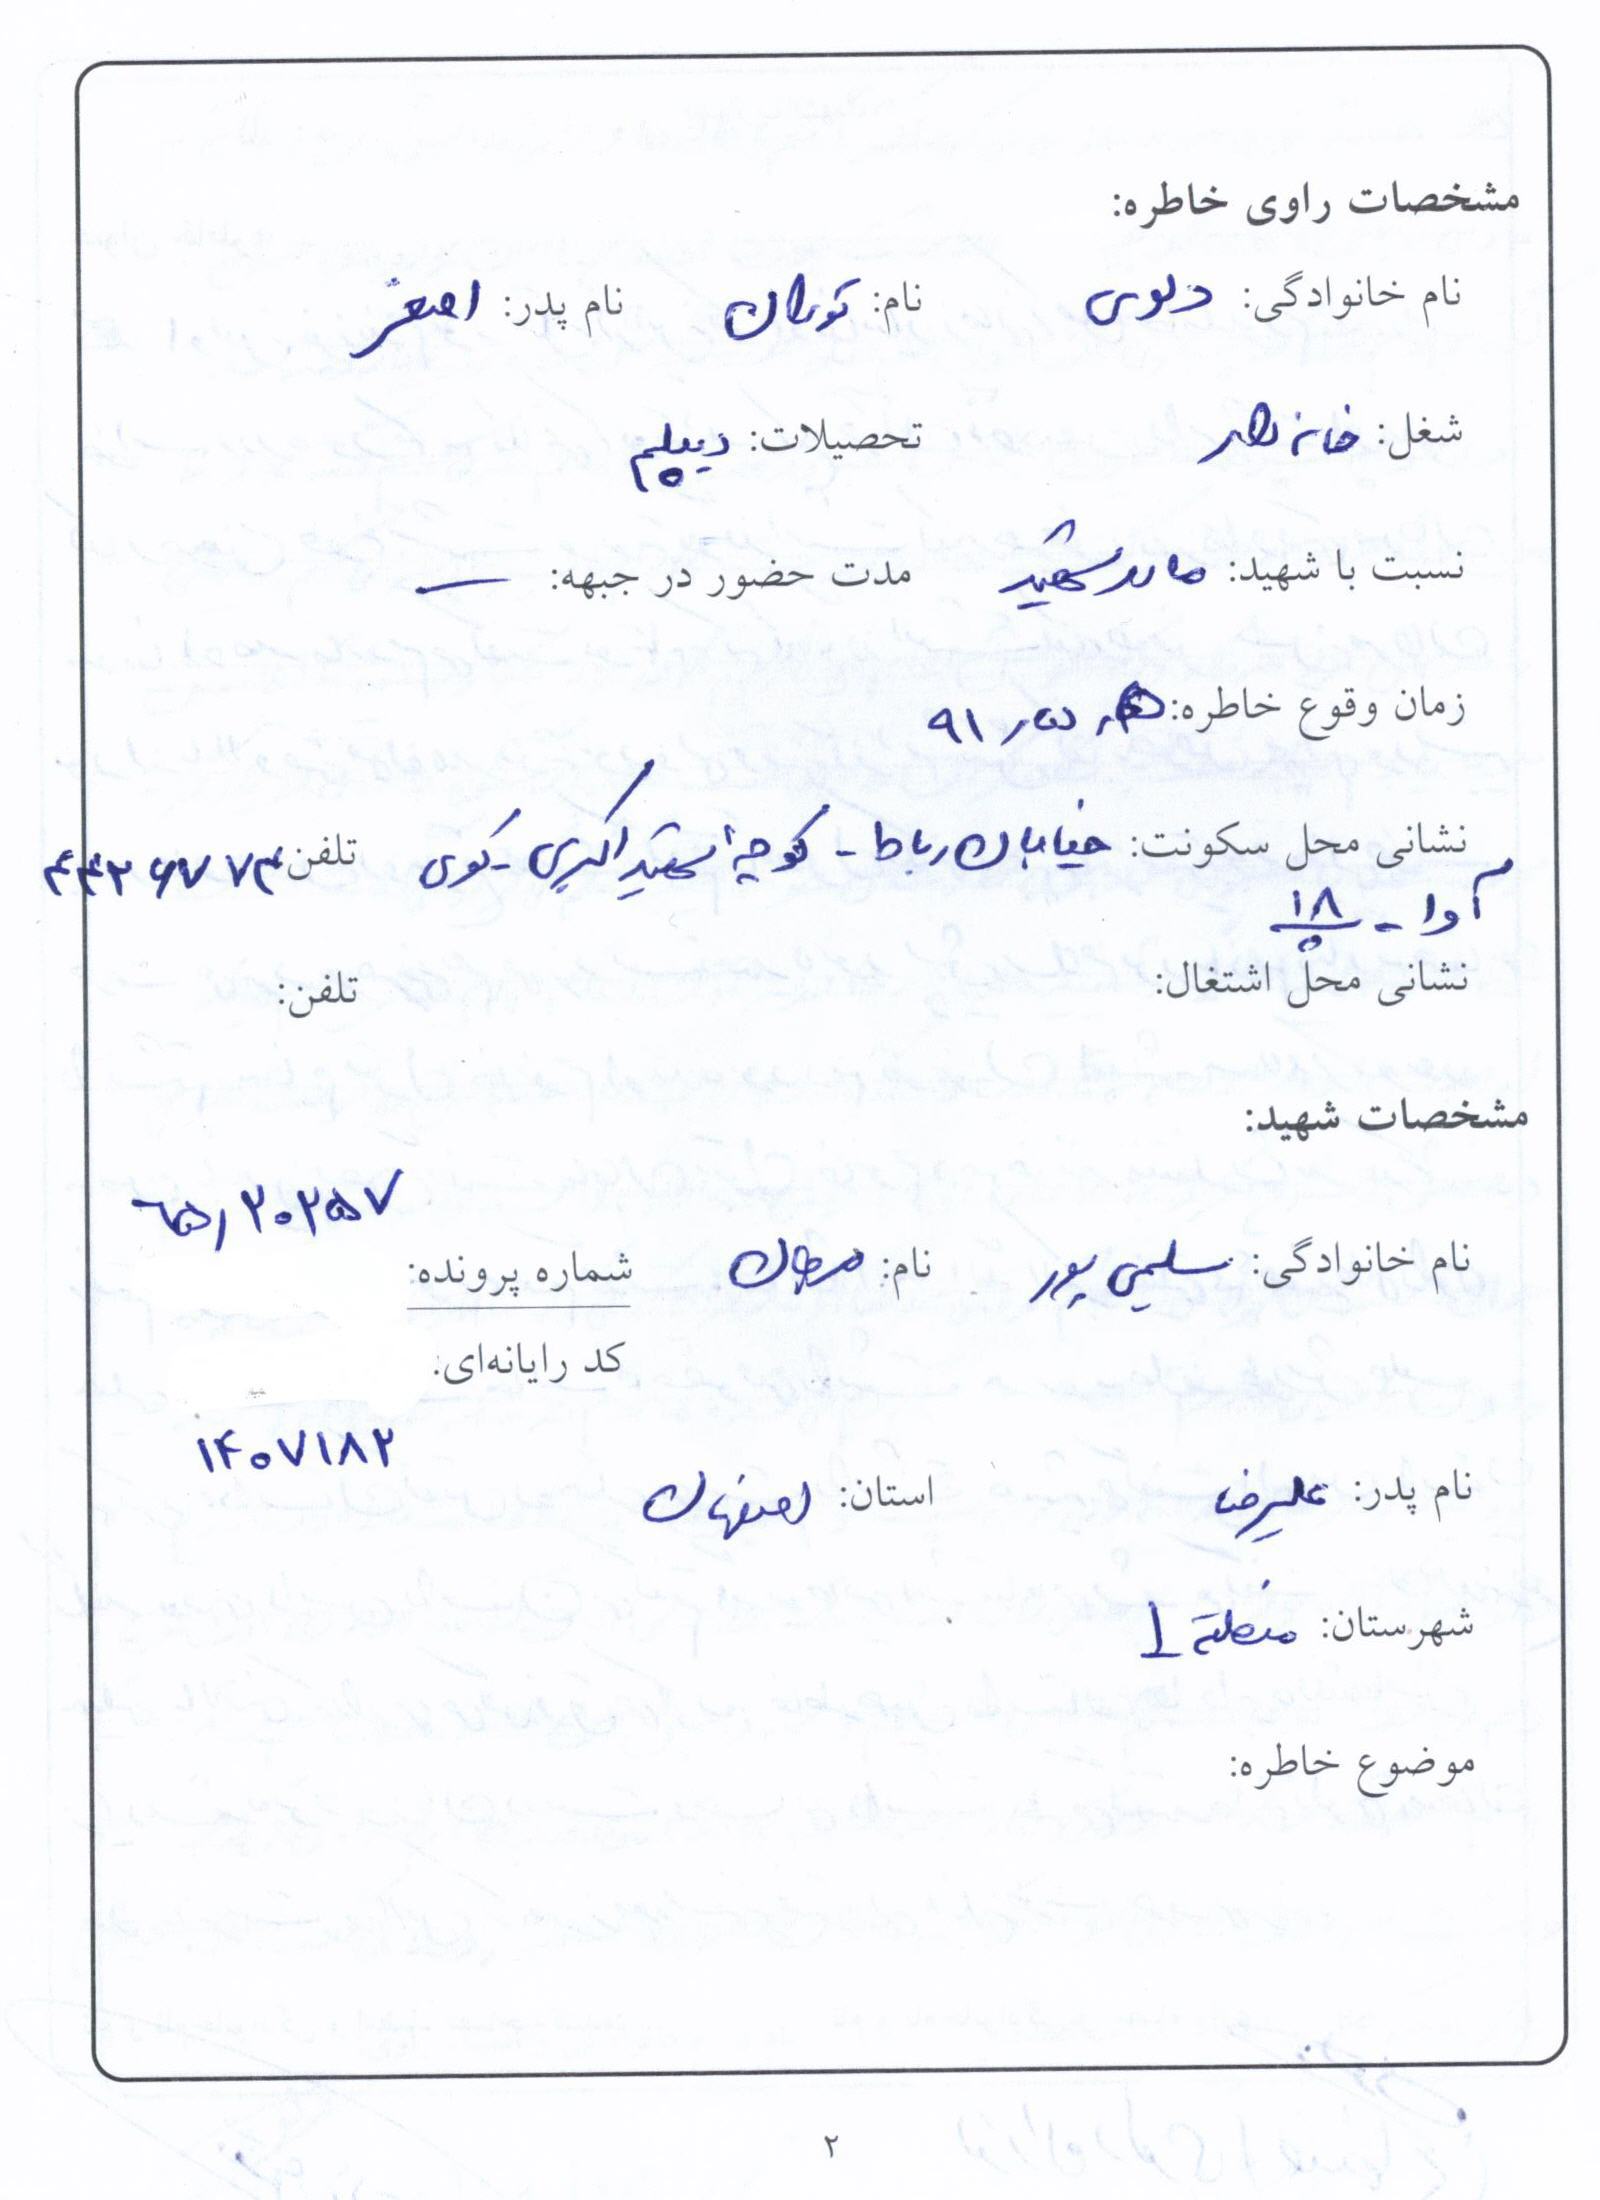 مشخصات راوی خاطره:
نام خانوادگی: دلوی نام: توران نام پدر: اصغر
شغل: خانه دار تحصیلات: دیپلم
نسبت با شهید: مادر شهید مدت حضور در جبهه: —
زمان وقوع خاطره: ۹۱
نشانی محل سکونت: خیابان رباط - کوچه شهید اکبری - کوی تلفن: ۴۴۲۶۷۷۴
آوا - ۱۸
نشانی محل اشتغال: تلفن:
مشخصات شهید:
۲۰۲۵۷
نام خانوادگی: سلیمی پور نام: مرجان شماره پرونده:
کد رایانه‌ای:
۱۴۰۷۱۸۲
نام پدر: علیرضا استان: اصفهان
شهرستان: منطقه ۱
موضوع خاطره:
۲